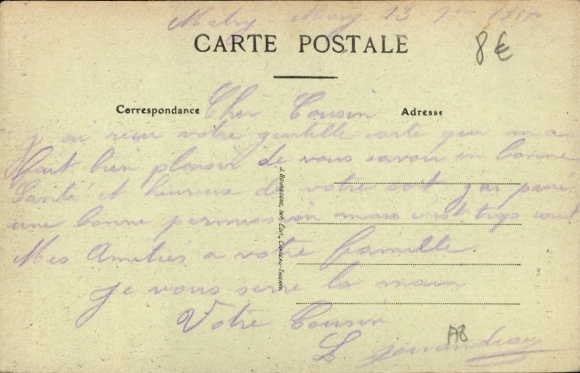 13 7bre
CARTE POSTALE
8€
Correspondance
Adresse
Cher Cousin
J ai reçu votre gentille carte qui m a
fait bien plaisir de vous savoir en bonne
Santé et heureux de votre sort j ai passé
une bonne permission mais c'est trop court
Mes Amitiés a votre famille
je vous serre la main
Votre Cousin
L
AB